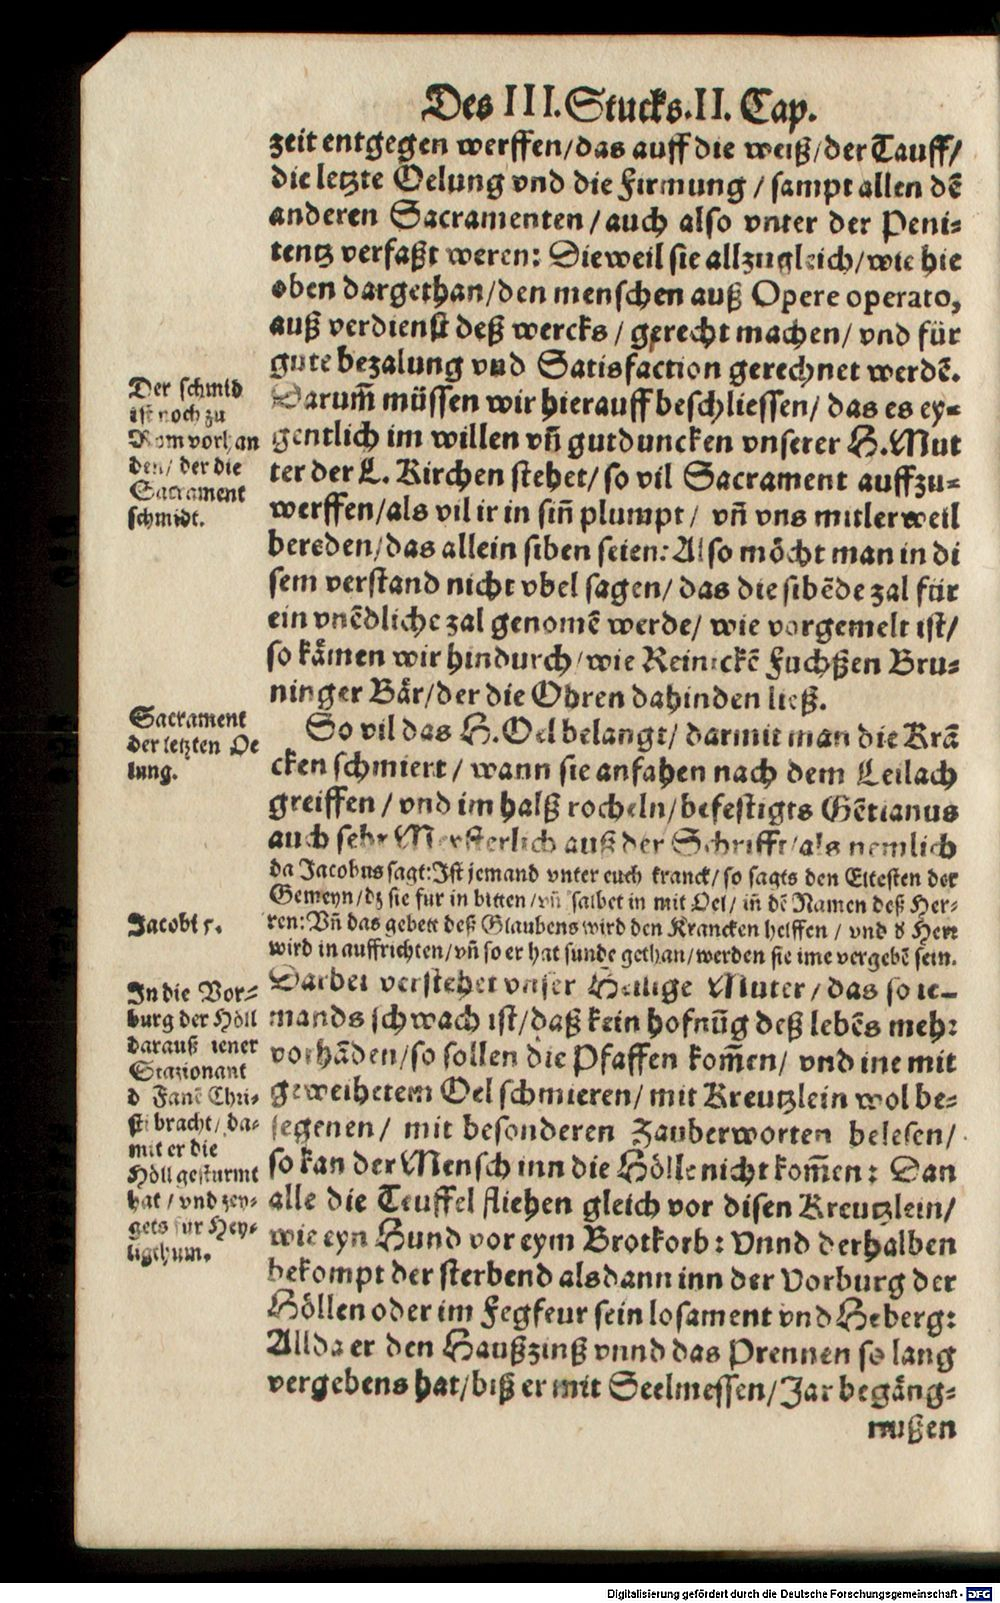 Des III. Stucks. II. Cap.
zeit entgegen werffen/das auff die weiß/der Tauff/
die letzte Oelung vnd die Firmung / sampt allen dē
anderen Sacramenten / auch also vnter der Peni-
tentz verfaßt weren: Dieweil sie allzugleich/wie hie
oben dargethan/den menschen auß Opere operato,
auß verdienst deß wercks / gerecht machen/ vnd für
gute bezalung vnd Satisfaction gerechnet werdē.
Darum̄ müssen wir hierauff beschliessen/ das es ey-
gentlich im willen vn̄ gutduncken vnserer H. Mut
ter der L. Kirchen stehet/ so vil Sacrament auffzu-
werffen/als vil ir in sin̄ plumpt/ vn̄ vns mitlerweil
bereden/das allein siben seien: Also möcht man in di
sem verstand nicht vbel sagen/ das die sibēde zal für
ein vnēdliche zal genomē werde/ wie vorgemelt ist/
so kämen wir hindurch/wie Reinickē Fuchßen Bru-
ninger Bär/der die Ohren dahinden ließ.
So vil das H. Oel belangt/ darmit man die Krā
cken schmiert / wann sie anfahen nach dem Leilach
greiffen / vnd im halß rocheln/befestigts Gētianus
auch sehr Meysterlich auß der Schrifft/als nemlich
da Jacobus sagt: Ist jemand vnter euch kranck/ so sagts den Eltesten der
Gemeyn/dz sie fur in bitten/vn̄ salbet in mit Oel/ in̄ dē Namen deß Her-
ren: Vn̄ das gebett deß Glaubens wird den Krancken helffen / vnd d Herr
wird in auffrichten/vn̄ so er hat sunde gethan/werden sie ime vergebē sein.
Darbei verstehet vnser Heilige Muter/ das so ie-
mands schwach ist/daß kein hofnūg deß lebēs mehr
vorhāden/so sollen die Pfaffen kom̄en/ vnd ine mit
geweihetem Oel schmieren/ mit Kreutzlein wol be-
segenen/ mit besonderen Zauberworten belesen/
so kan der Mensch inn die Hölle nicht kom̄en: Dan
alle die Teuffel fliehen gleich vor disen Kreutzlein/
wie eyn Hund vor eym Brotkorb: Vnnd derhalben
bekompt der sterbend alsdann inn der Vorburg der
Höllen oder im Fegfeur sein losament vnd Heberg:
Allda er den Haußzinß vnnd das Prennen so lang
vergebens hat/biß er mit Seelmessen/Jar begäng-
nußen
Der schmid
ist noch zu
Rom vorhan
den/ der die
Sacrament
schmidt.
Sacrament
der letzten Oe
lung.
Jacobi 5.
In die Vor-
burg der Höll
darauß iener
Stazionant
d Fanē Chri-
sti bracht/ da-
mit er die
Höll gesturmt
hat / vnd zey-
gets für Hey-
ligthum.
Digitalisierung gefördert durch die Deutsche Forschungsgemeinschaft - DFG